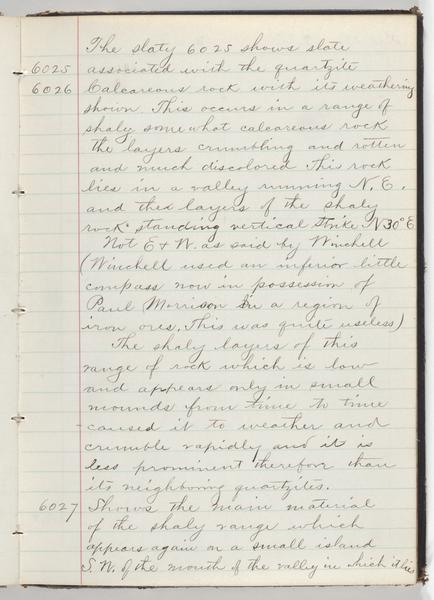 The slaty 6025 shows slate
6025 associated with the quartzite
6026 Calcareous rock with its weathering
shown. This occurs in a range of
shaly somewhat calcareous rock
the layers crumbling and rotten
and much discolored This rock
lies in a valley running N.E.
and the layers of the shaly
rock standing vertical Strike N30°E
Not E & W. as said by Winchell
(Winchell used an inferior little
compass now in possession of
Paul Morrison in a region of
iron ores. This was quite useless)
The shaly layers of this
range of rock which is low
and appears only in small
mounds from time to time
caused it to weather and
crumble rapidly and it is
less prominent therefore than
its neighboring quartzites.
6027 Shows the main material
of the shaly range which
appears again on a small island
S.W. of the mouth of the valley in which it lies